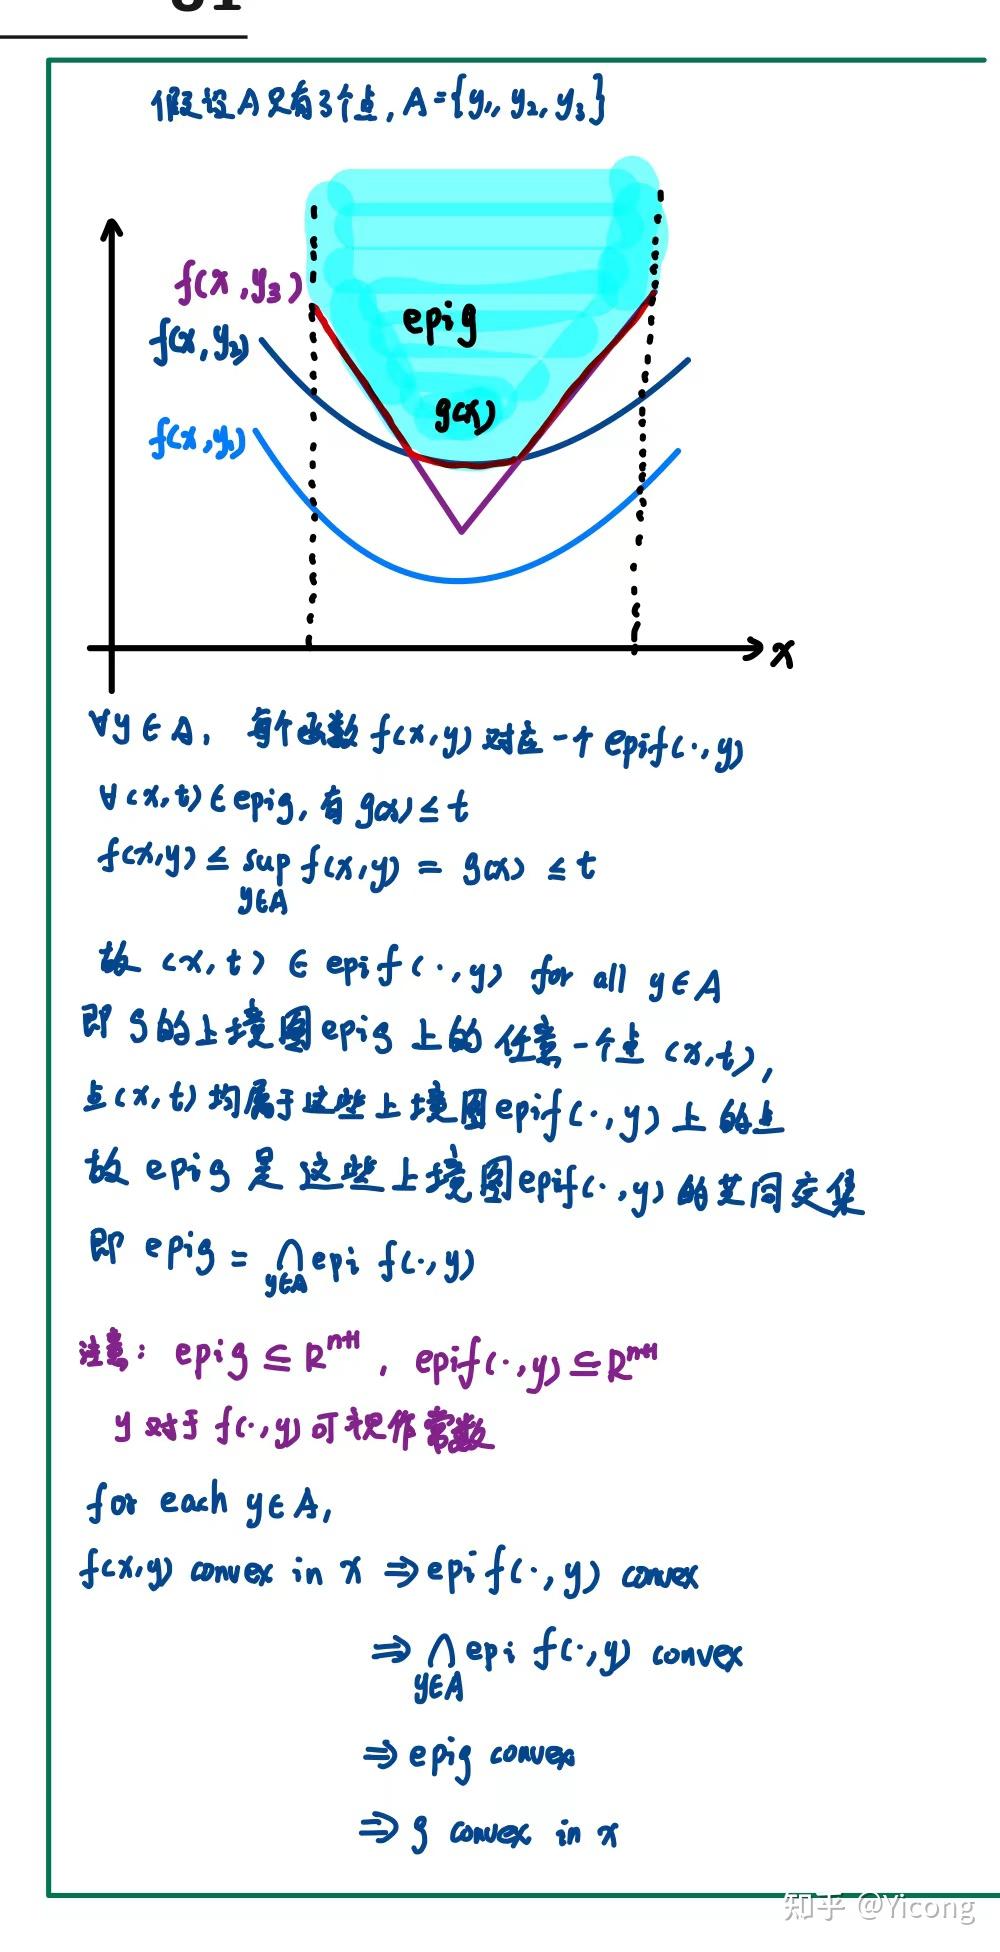 假设A只有3个点, A={y₁, y₂, y₃}
f(x,y₃)
epig
f(x,y₂)
g(x)
f(x,y₁)
x
∀y∈A, 每个函数 f(x,y) 对应一个 epif(·,y)
∀(x,t)∈epig, 有 g(x)≤t
f(x,y) ≤ sup f(x,y) = g(x) ≤ t
y∈A
故 (x,t) ∈ epif(·,y) for all y∈A
即 g的上境图epig上的任意一个点 (x,t),
点(x,t)均属于这些上境图epif(·,y)上的点
故 epig 是这些上境图epif(·,y)的共同交集
即 epig = ⋂ epi f(·,y)
y∈A
注意: epig ⊆ Rⁿ⁺¹, epif(·,y) ⊆ Rⁿ⁺¹
y 对于 f(·,y) 可视作常数
for each y∈A,
f(x,y) convex in x ⇒ epif(·,y) convex
⇒ ⋂ epi f(·,y) convex
y∈A
⇒ epig convex
⇒ g convex in x
知乎 @Yicong